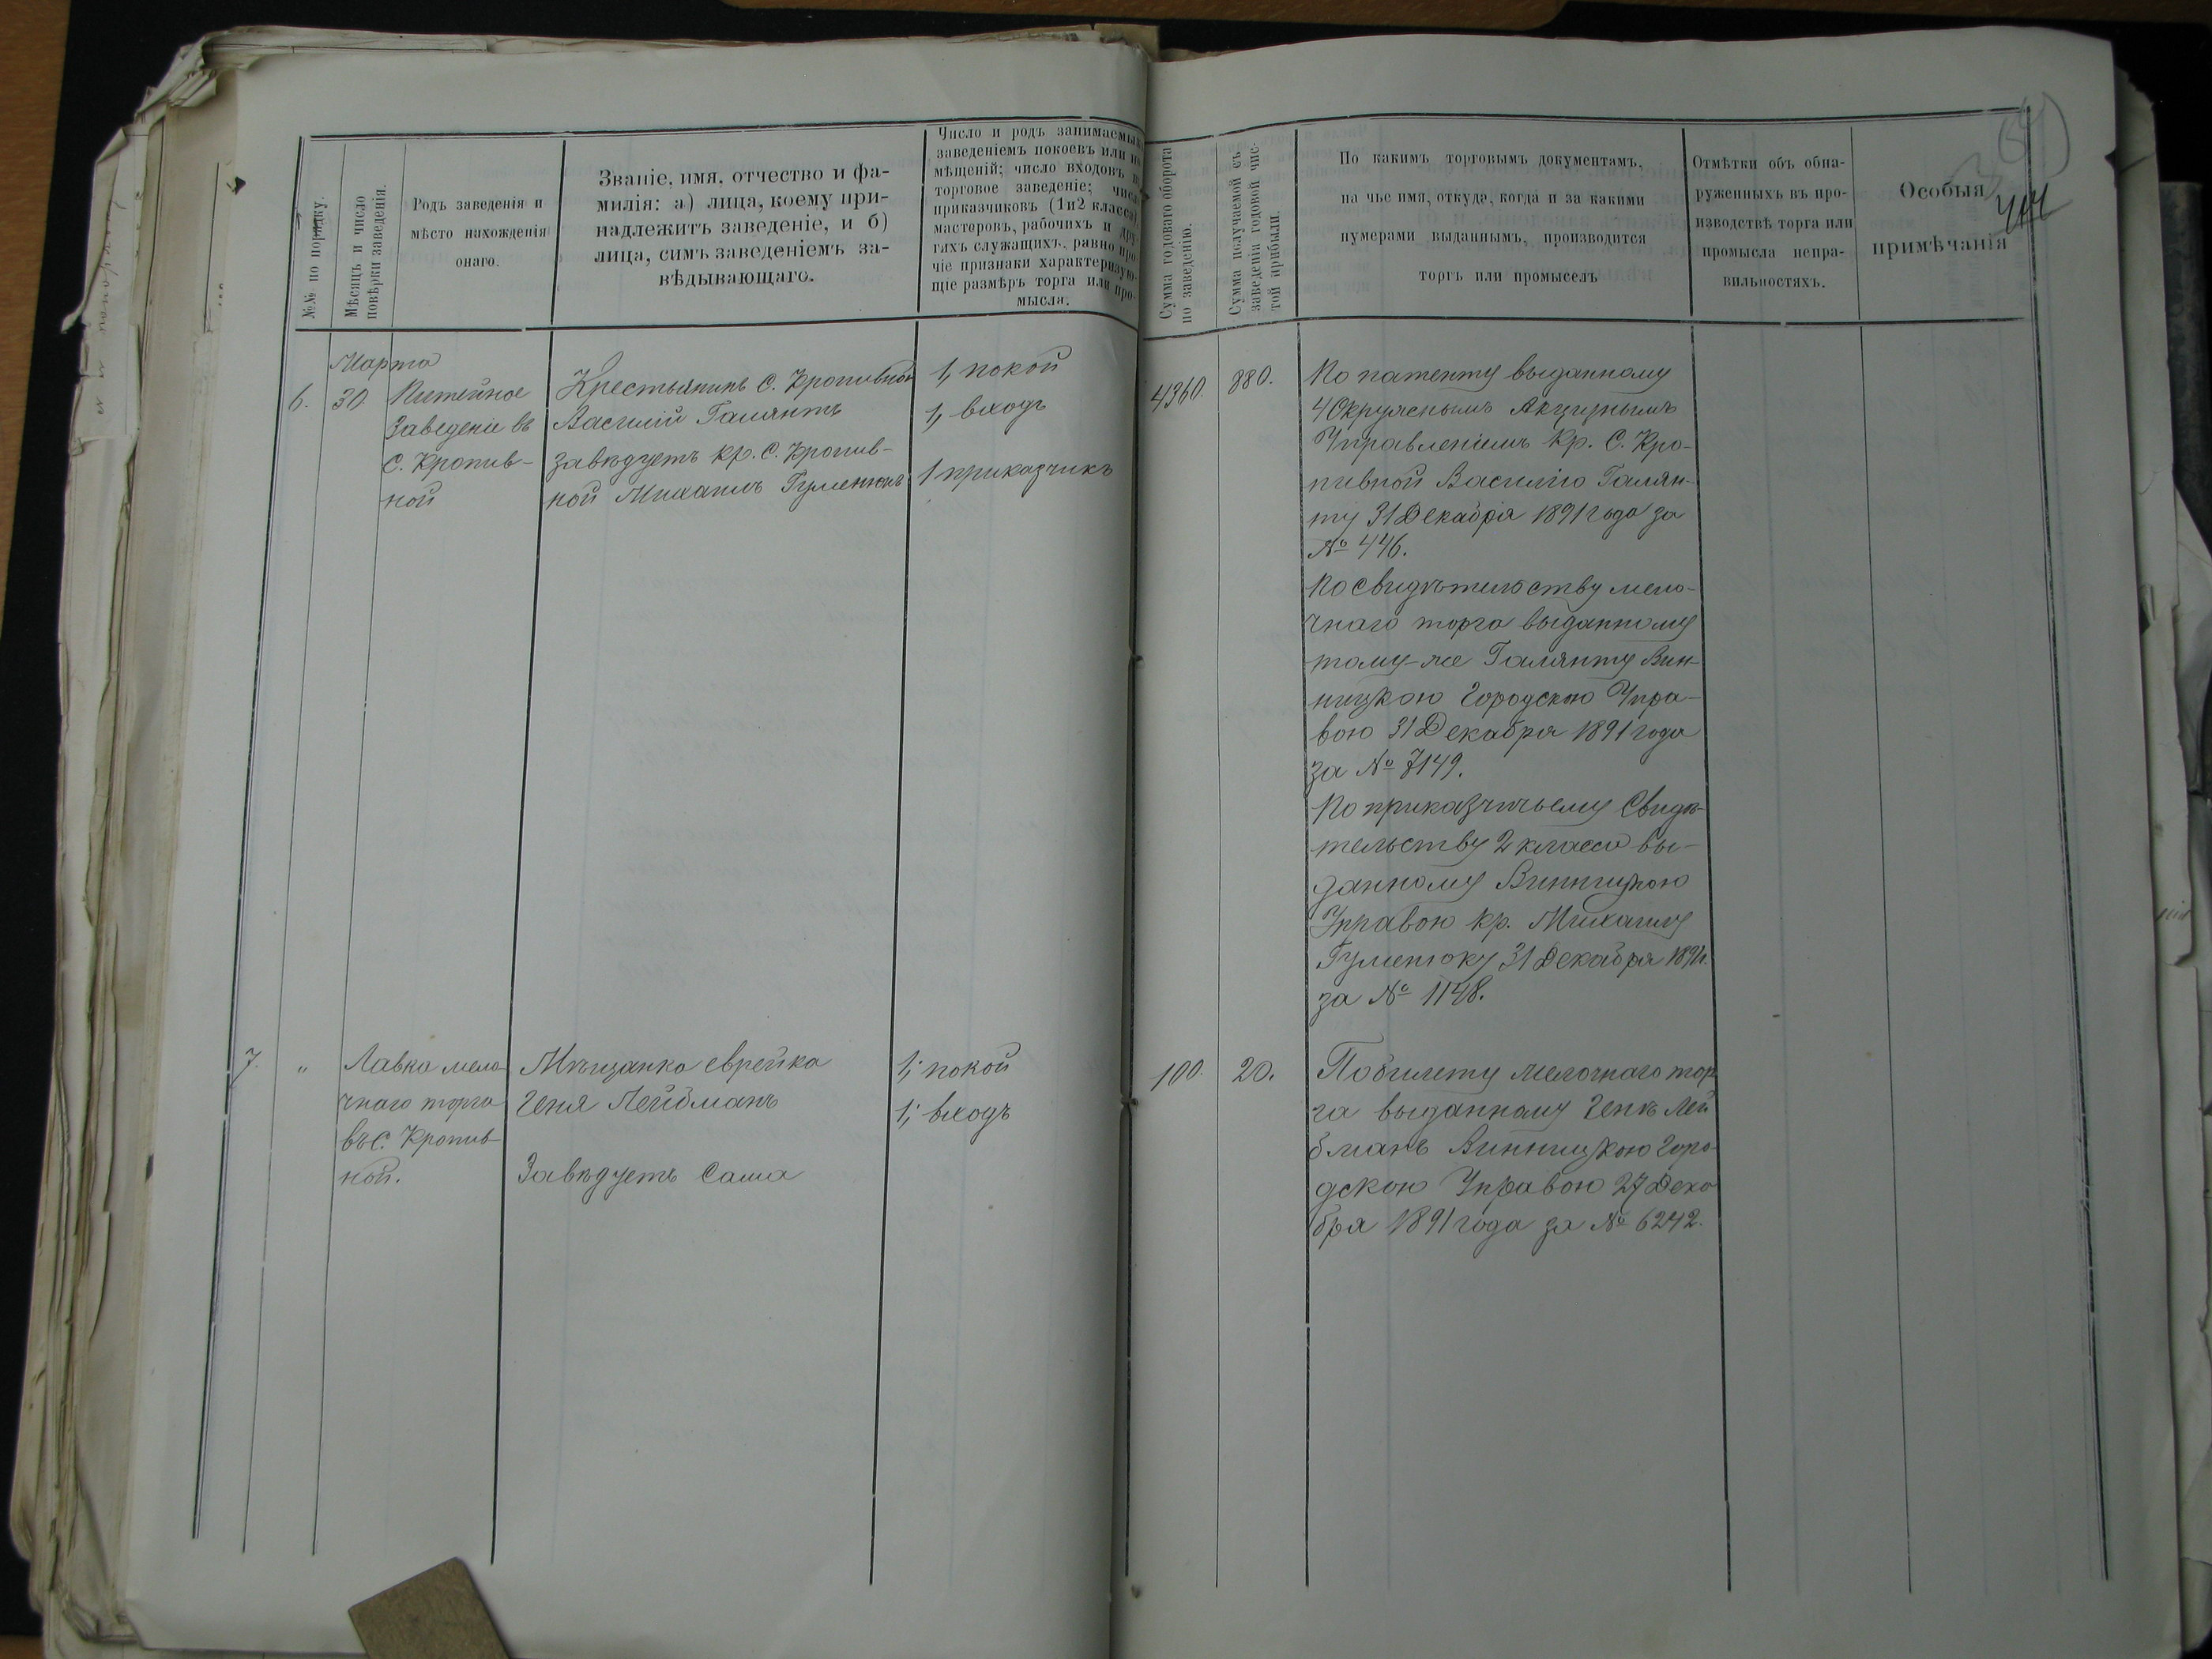 №№ по порядку.
Мѣсяцъ и число
повѣрки заведенія.
Родъ заведенія и
мѣсто нахожденія
онаго.
Званіе, имя, отчество и фа-
милія: а) лица, коему при-
надлежитъ заведеніе, и б)
лица, симъ заведеніемъ за-
вѣдывающаго.
Число и родъ занимаемыхъ
заведеніемъ покоевъ или по-
мѣщеній; число входовъ въ
торговое заведеніе; число
приказчиковъ (1и2 класса)
мастеровъ, рабочихъ и дру-
гихъ служащихъ, равно про-
чіе признаки характеризую-
щіе размѣръ торга или про-
мысла.
Сумма годоваго оборота
по заведенію.
Сумма получаемой съ
заведенія годовой чис-
той прибыли.
По какимъ торговымъ документамъ,
на чье имя, откуда, когда и за какими
нумерами выданнымъ, производится
торгъ или промыселъ
Отмѣтки объ обна-
руженныхъ въ про-
изводствѣ торга или
промысла непра-
вильностяхъ.
Особыя
примѣчанія
Марта
6.
30.
Питейное
Заведеніе въ
С. Кропив-
ной
Крестьянинъ С. Кропивной
Василій Галянтъ
завѣдуетъ кр. С. Кропив-
ной Михаилъ Гуменюкъ
1, покой
1, входъ
1 приказчикъ
4360.
880.
По патенту выданному
4 Окружнымъ Акцизнымъ
Управленіемъ Кр. С. Кро-
пивной Василію Галян-
ту 31 Декабря 1891 года за
№ 446.
По свидѣтельству мело-
чнаго торга выданному
тому-же Галянту Вин-
ницкою Городскою Упра-
вою 31 Декабря 1891 года
за № 7149.
По приказчичьему Свидѣ-
тельству 2 класса вы-
данному Винницкою
Управою кр. Михаилу
Гуменюку 31 Декабря 1891г.
за № 1148.
7.
"
Лавка мело-
чнаго торга
въ С. Кропив-
ной.
Мѣщанка еврейка
Геня Лейбманъ
Завѣдуетъ Сама
1; покой
1; входъ
100.
20.
По билету мелочнаго тор-
га выданному Генѣ Лей
бманъ Винницкою Горо-
дскою Управою 27 Дека
бря 1891 года за № 6242.